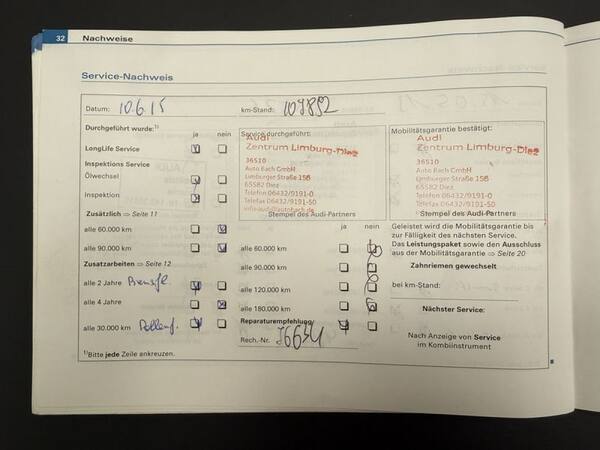 32 Nachweise
Service-Nachweis
Datum: 10.6.15 km-Stand: 107892
Durchgeführt wurde:¹⁾ ja nein
LongLife Service
Inspektions Service
Ölwechsel
Inspektion
Zusätzlich ⇒ Seite 11
alle 60.000 km
alle 90.000 km
Zusatzarbeiten ⇒ Seite 12
alle 2 Jahre
alle 4 Jahre
alle 30.000 km
¹⁾Bitte jede Zeile ankreuzen.
Service durchgeführt:
Audi
Zentrum Limburg-Diez
36510
Auto Bach GmbH
Limburger Straße 156
65582 Diez
Telefon 06432/9191-0
Telefax 06432/9191-50
info-audi@autobach.de
Stempel des Audi-Partners
ja nein
alle 60.000 km
alle 90.000 km
alle 120.000 km
alle 180.000 km
Reparaturempfehlung
Rech.-Nr.
Mobilitätsgarantie bestätigt:
Audi
Zentrum Limburg-Diez
36510
Auto Bach GmbH
Limburger Straße 156
65582 Diez
Telefon 06432/9191-0
Telefax 06432/9191-50
Stempel des Audi-Partners
Geleistet wird die Mobilitätsgarantie bis
zur Fälligkeit des nächsten Service.
Das Leistungspaket sowie den Ausschluss
aus der Mobilitätsgarantie ⇒ Seite 20
Zahnriemen gewechselt
bei km-Stand:
Nächster Service:
Nach Anzeige von Service
im Kombiinstrument